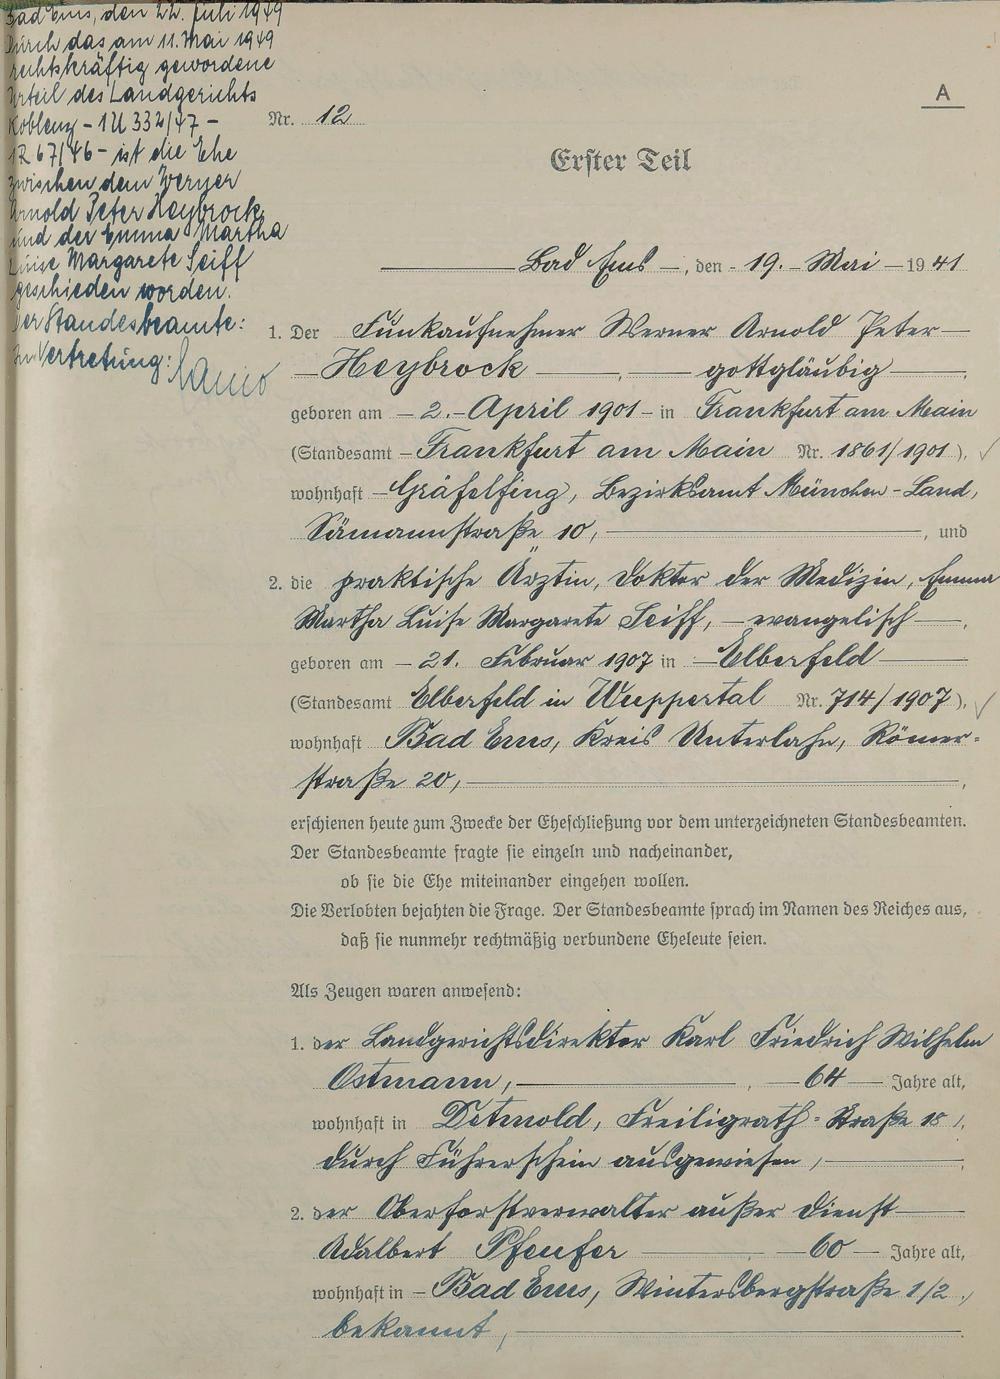 Bad Ems, den 22. Juli 1949
Durch das am 11. Mai 1949
rechtskräftig gewordene
Urteil des Landgerichts
Koblenz - 1 U 332/47 -
1R 67/46 - ist die Ehe
zwischen dem Werner
Arnold Peter Heybrock
und der Emma Martha
Luise Margarete Seiff
geschieden worden.
Der Standesbeamte:
In Vertretung:
A
Nr. 12
Erster Teil
Bad Ems, den 19. Mai 1941
1. Der Funkaufnehmer Werner Arnold Peter
Heybrock, gottgläubig,
geboren am 2. April 1901 in Frankfurt am Main
(Standesamt Frankfurt am Main Nr. 1861/1901),
wohnhaft Gräfelfing, Bezirksamt München-Land,
Sämannstraße 10, und
2. die praktische Ärztin, Doktor der Medizin, Emma
Martha Luise Margarete Seiff, evangelisch,
geboren am 21. Februar 1907 in Elberfeld
(Standesamt Elberfeld in Wuppertal Nr. 714/1907),
wohnhaft Bad Ems, Kreis Unterlahn, Römer-
straße 20,
erschienen heute zum Zwecke der Eheschließung vor dem unterzeichneten Standesbeamten.
Der Standesbeamte fragte sie einzeln und nacheinander,
ob sie die Ehe miteinander eingehen wollen.
Die Verlobten bejahten die Frage. Der Standesbeamte sprach im Namen des Reiches aus,
daß sie nunmehr rechtmäßig verbundene Eheleute seien.
Als Zeugen waren anwesend:
1. der Landgerichtsdirektor Karl Friedrich Wilhelm
Ostmann, 64 Jahre alt,
wohnhaft in Detmold, Freiligrath-Straße 18,
durch Führerschein ausgewiesen,
2. der Oberforstverwalter außer Dienst
Adalbert Pfeufer, 60 Jahre alt,
wohnhaft in Bad Ems, Wintersbergstraße 1/2,
bekannt,